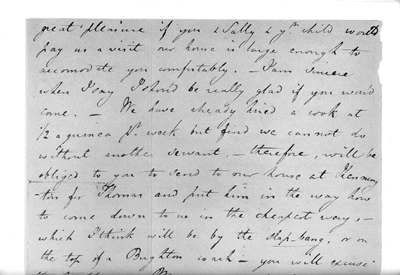 great pleasure if you & Sally & yr. child would
pay us a visit our house is large enough to
accomodate you comfortably. – I am sincere
when I say I should be really glad if you would
come. – We have already hired a cook at
1/2 a guinea Pr. week but find we can not do
without another servant, – therefore, will be
obliged to you to send to our house at Kenning
ton for Thomas and put him in the way how
to come down to us in the cheapest way, –
which I think will be by the slap-bang, or on
the top of a Brighton coach – you will excuse